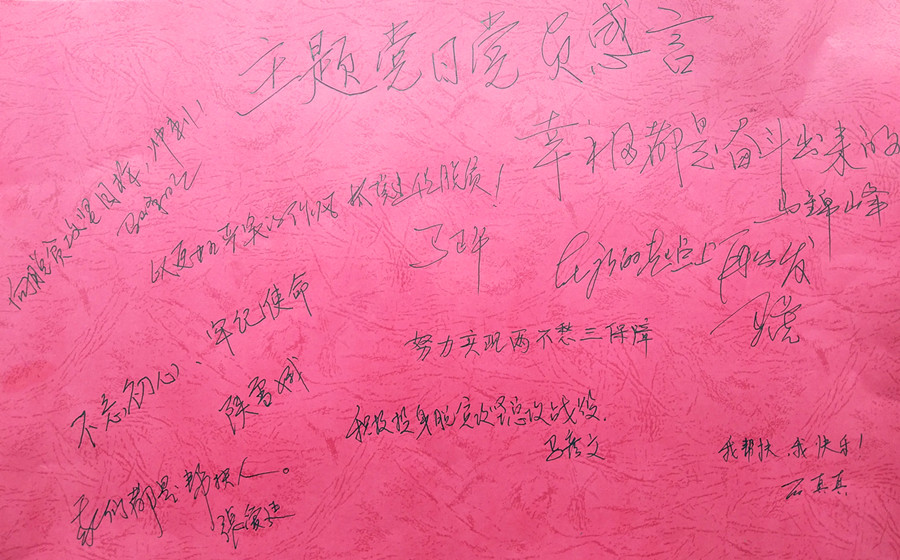 主题党日党员感言
向脱贫攻坚目标,冲刺!
幸福都是奋斗出来的
马锦峰
以更加辛实的作风 打赢脱贫!
在新的起点上 再出发
不忘初心、牢记使命
陈富斌
努力实现两不愁三保障
积极投身脱贫攻坚总攻战役.
马喜文
我们都是帮扶人。
我帮扶,我快乐!
石真真